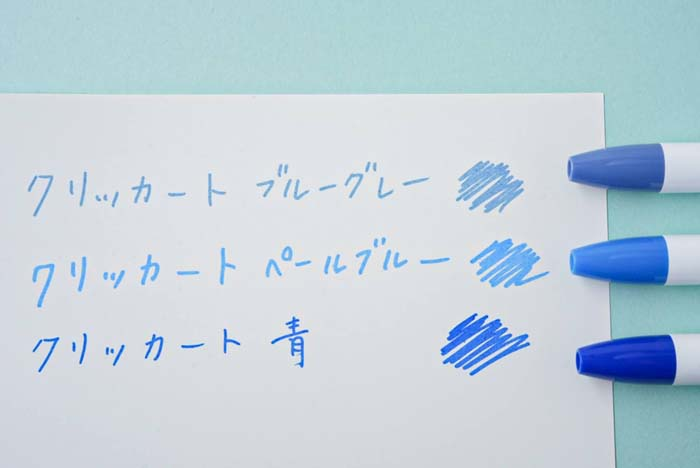 クリッカート ブルーグレー
クリッカート ペールブルー
クリッカート 青